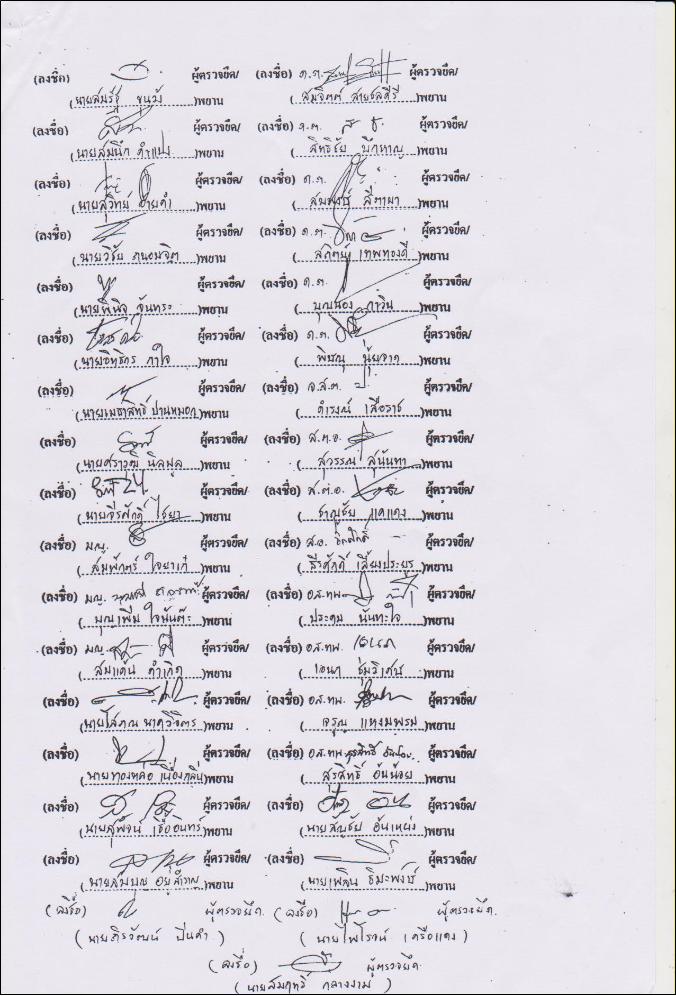 (ลงชื่อ) ผู้ตรวจยึด/ (ลงชื่อ) ด.ต. ผู้ตรวจยึด/
(นายสมรัฐ ขุนวัง)พยาน (สมจิตต์ สายชลคีรี)พยาน
(ลงชื่อ) ผู้ตรวจยึด/ (ลงชื่อ) ด.ต. ผู้ตรวจยึด/
(นายสมนึก คำแปง)พยาน (สิทธิชัย)พยาน
(ลงชื่อ) ผู้ตรวจยึด/ (ลงชื่อ) ด.ต. ผู้ตรวจยึด/
(นายสุวิทย์ อ้ายคำ)พยาน (สมพงษ์ สีตามา)พยาน
(ลงชื่อ) ผู้ตรวจยึด/ (ลงชื่อ) ด.ต. ผู้ตรวจยึด/
(นายวิชัย ถนอมจิต)พยาน (เทพทองดี)พยาน
(ลงชื่อ) ผู้ตรวจยึด/ (ลงชื่อ) ด.ต. ผู้ตรวจยึด/
(นายพินิจ จันทระ)พยาน (บุญนอง กาวิน)พยาน
(ลงชื่อ) ผู้ตรวจยึด/ (ลงชื่อ) ด.ต. ผู้ตรวจยึด/
(นายอิทธิกร กาใจ)พยาน (พิษณุ)พยาน
(ลงชื่อ) ผู้ตรวจยึด/ (ลงชื่อ) จ.ส.ต. ผู้ตรวจยึด/
(นายเมธาสิทธิ์ ปานหมอก)พยาน (ดำรงณ์ เสือราช)พยาน
(ลงชื่อ) ผู้ตรวจยึด/ (ลงชื่อ) ส.ต.อ. ผู้ตรวจยึด/
(นายศราวุฒิ นิลมูล)พยาน (สุวรรณ สุนันทา)พยาน
(ลงชื่อ) ผู้ตรวจยึด/ (ลงชื่อ) ส.ต.อ. ผู้ตรวจยึด/
(นายจีรศักดิ์ ไชยา)พยาน (ชาญชัย แดแดง)พยาน
(ลงชื่อ) มญ. ผู้ตรวจยึด/ (ลงชื่อ) ส.อ. ผู้ตรวจยึด/
(สมพักตร์ ใจยาเก๋)พยาน (ธีรศักดิ์ เลี้ยงประยูร)พยาน
(ลงชื่อ) มญ. ผู้ตรวจยึด/ (ลงชื่อ) อส.ทพ. ผู้ตรวจยึด/
(บุญเพิ่ม ใจนันต๊ะ)พยาน (ประคม นันทะใจ)พยาน
(ลงชื่อ) มญ. ผู้ตรวจยึด/ (ลงชื่อ) อส.ทพ. ผู้ตรวจยึด/
(สมแดน คำเกิด)พยาน (เอนก ชุ่มวิเศษ)พยาน
(ลงชื่อ) ผู้ตรวจยึด/ (ลงชื่อ) อส.ทพ. ผู้ตรวจยึด/
(นายโสภณ นาควิจิตร)พยาน (จรูญ แทงมพรม)พยาน
(ลงชื่อ) ผู้ตรวจยึด/ (ลงชื่อ) อส.ทพ. ผู้ตรวจยึด/
(นายทองหล่อ เนื่องกลิ่น)พยาน (สุรสิทธิ์ อ้นน้อย)พยาน
(ลงชื่อ) ผู้ตรวจยึด/ (ลงชื่อ) ผู้ตรวจยึด/
(นายสุพจน์ เชื้ออินทร์)พยาน (นายสัญชัย อ้นเหม่ง)พยาน
(ลงชื่อ) ผู้ตรวจยึด/ (ลงชื่อ) ผู้ตรวจยึด/
(นายสมบุญ อยู่สำราญ)พยาน (นายเพลิน ธิมะพงษ์)พยาน
(ลงชื่อ) ผู้ตรวจยึด. (ลงชื่อ) ผู้ตรวจยึด.
(นายถิรวัฒน์ ปินคำ) (นายไพโรจน์ เครือแดง)
(ลงชื่อ) ผู้ตรวจยึด.
(นายสมฤทธิ์ กลางงาม)